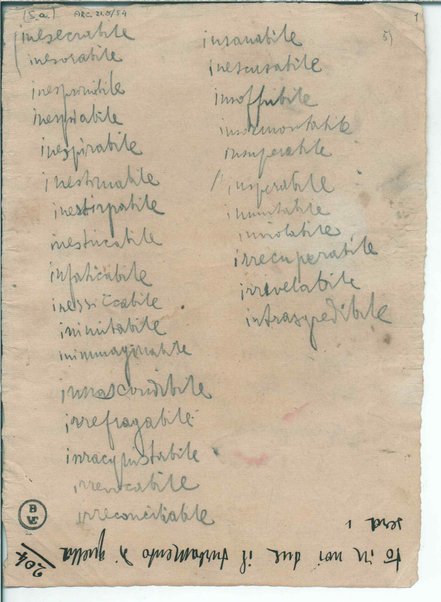 (5.a)
ARC. 21.8/54
inesecrabile
inesorabile
inesprimibile
inespiabile
inespirabile
inestimabile
inestirpabile
inestricabile
infaticabile
inessiccabile
inimitabile
inimmaginabile
innascondibile
irrefragabile
irracquistabile
irrevocabile
irreconciliabile
5)
insanabile
inescusabile
insoffribile
insormontabile
insuperabile
insperabile
inviolabile
irrecuperabile
irrivelabile
intrasgredibile
BVE
204
to in noi due il turbamento di quella
sera,